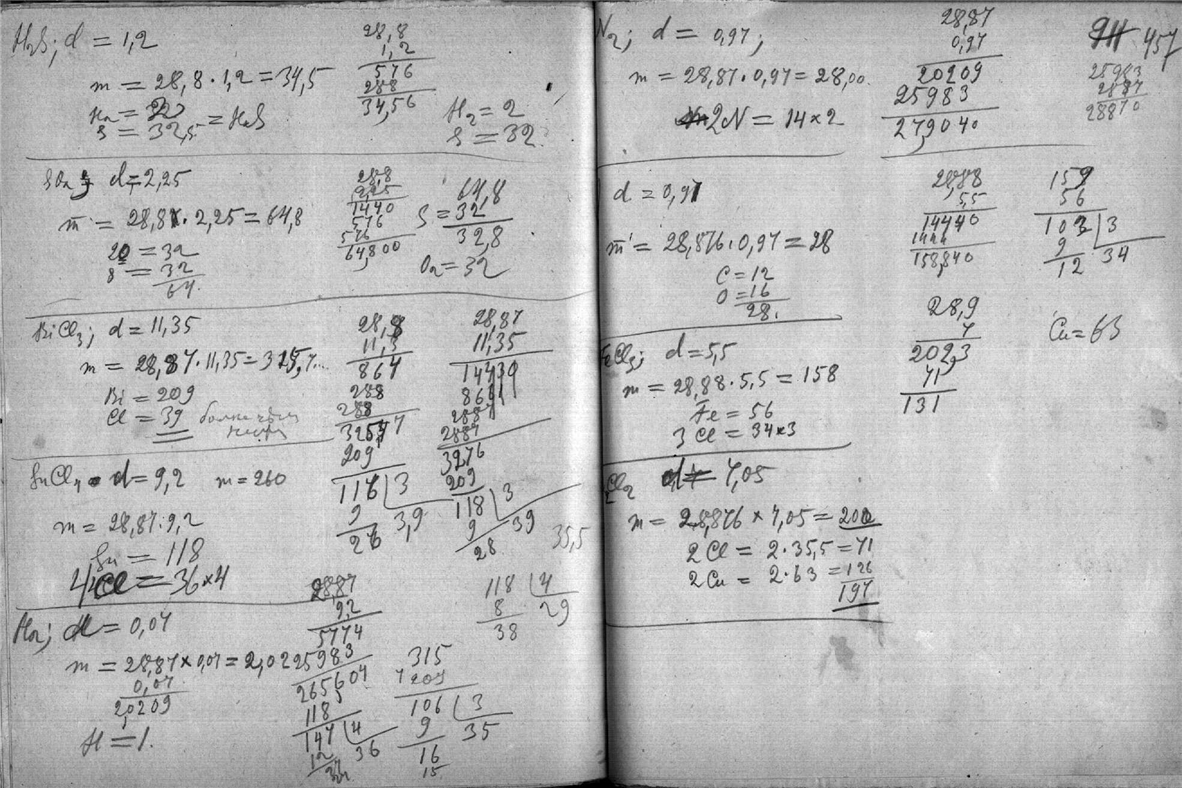 H₂S; d = 1,2
m = 28,8 · 1,2 = 34,5
S = 32,5 = H₂S
28,8
1,2
576
288
34,56
H₂ = 2
S = 32
SO₂; d = 2,25
m = 28,8 · 2,25 = 64,8
20 = 32
S = 32
64
28,8
2,25
1440
576
576
64,800
64,8
S = 32
32,8
O₂ = 32
BiCl₃; d = 11,35
m = 28,87 · 11,35 = 325,7...
Bi = 209
Cl = 39
28,8
11,3
864
288
288
209
116 | 3
9 3,9
26
28,87
11,35
14439
2887
3276
209
118 | 3
9 39
28
35,5
SnCl₄ d = 9,2 m = 260
m = 28,87 · 9,2
Sn = 118
4Cl = 36×4
2887
9,2
5774
25983
265604
118
147 | 4
12 36
118 | 4
8 29
38
H₂; d = 0,07
m = 28,87 × 0,07 = 2,02
0,07
20209
H = 1.
315
209
106 | 3
9 35
16
15
N₂; d = 0,97;
m = 28,87 · 0,97 = 28,00
2N = 14×2
28,87
0,97
20209
25983
279040
457
25983
2887
28870
d = 0,97
m = 28,876 · 0,97 = 28
C = 12
O = 16
28.
28,88
5,5
14440
1444
158,840
159
56
103 | 3
9 34
12
FeCl₃; d = 5,5
m = 28,88 · 5,5 = 158
Fe = 56
3 Cl = 34×3
28,9
7
202,3
71
131
Cu = 63
Cl₂ d = 7,05
m = 28,876 × 7,05 = 200
2 Cl = 2 · 35,5 = 71
2 Cu = 2 · 63 = 126
197